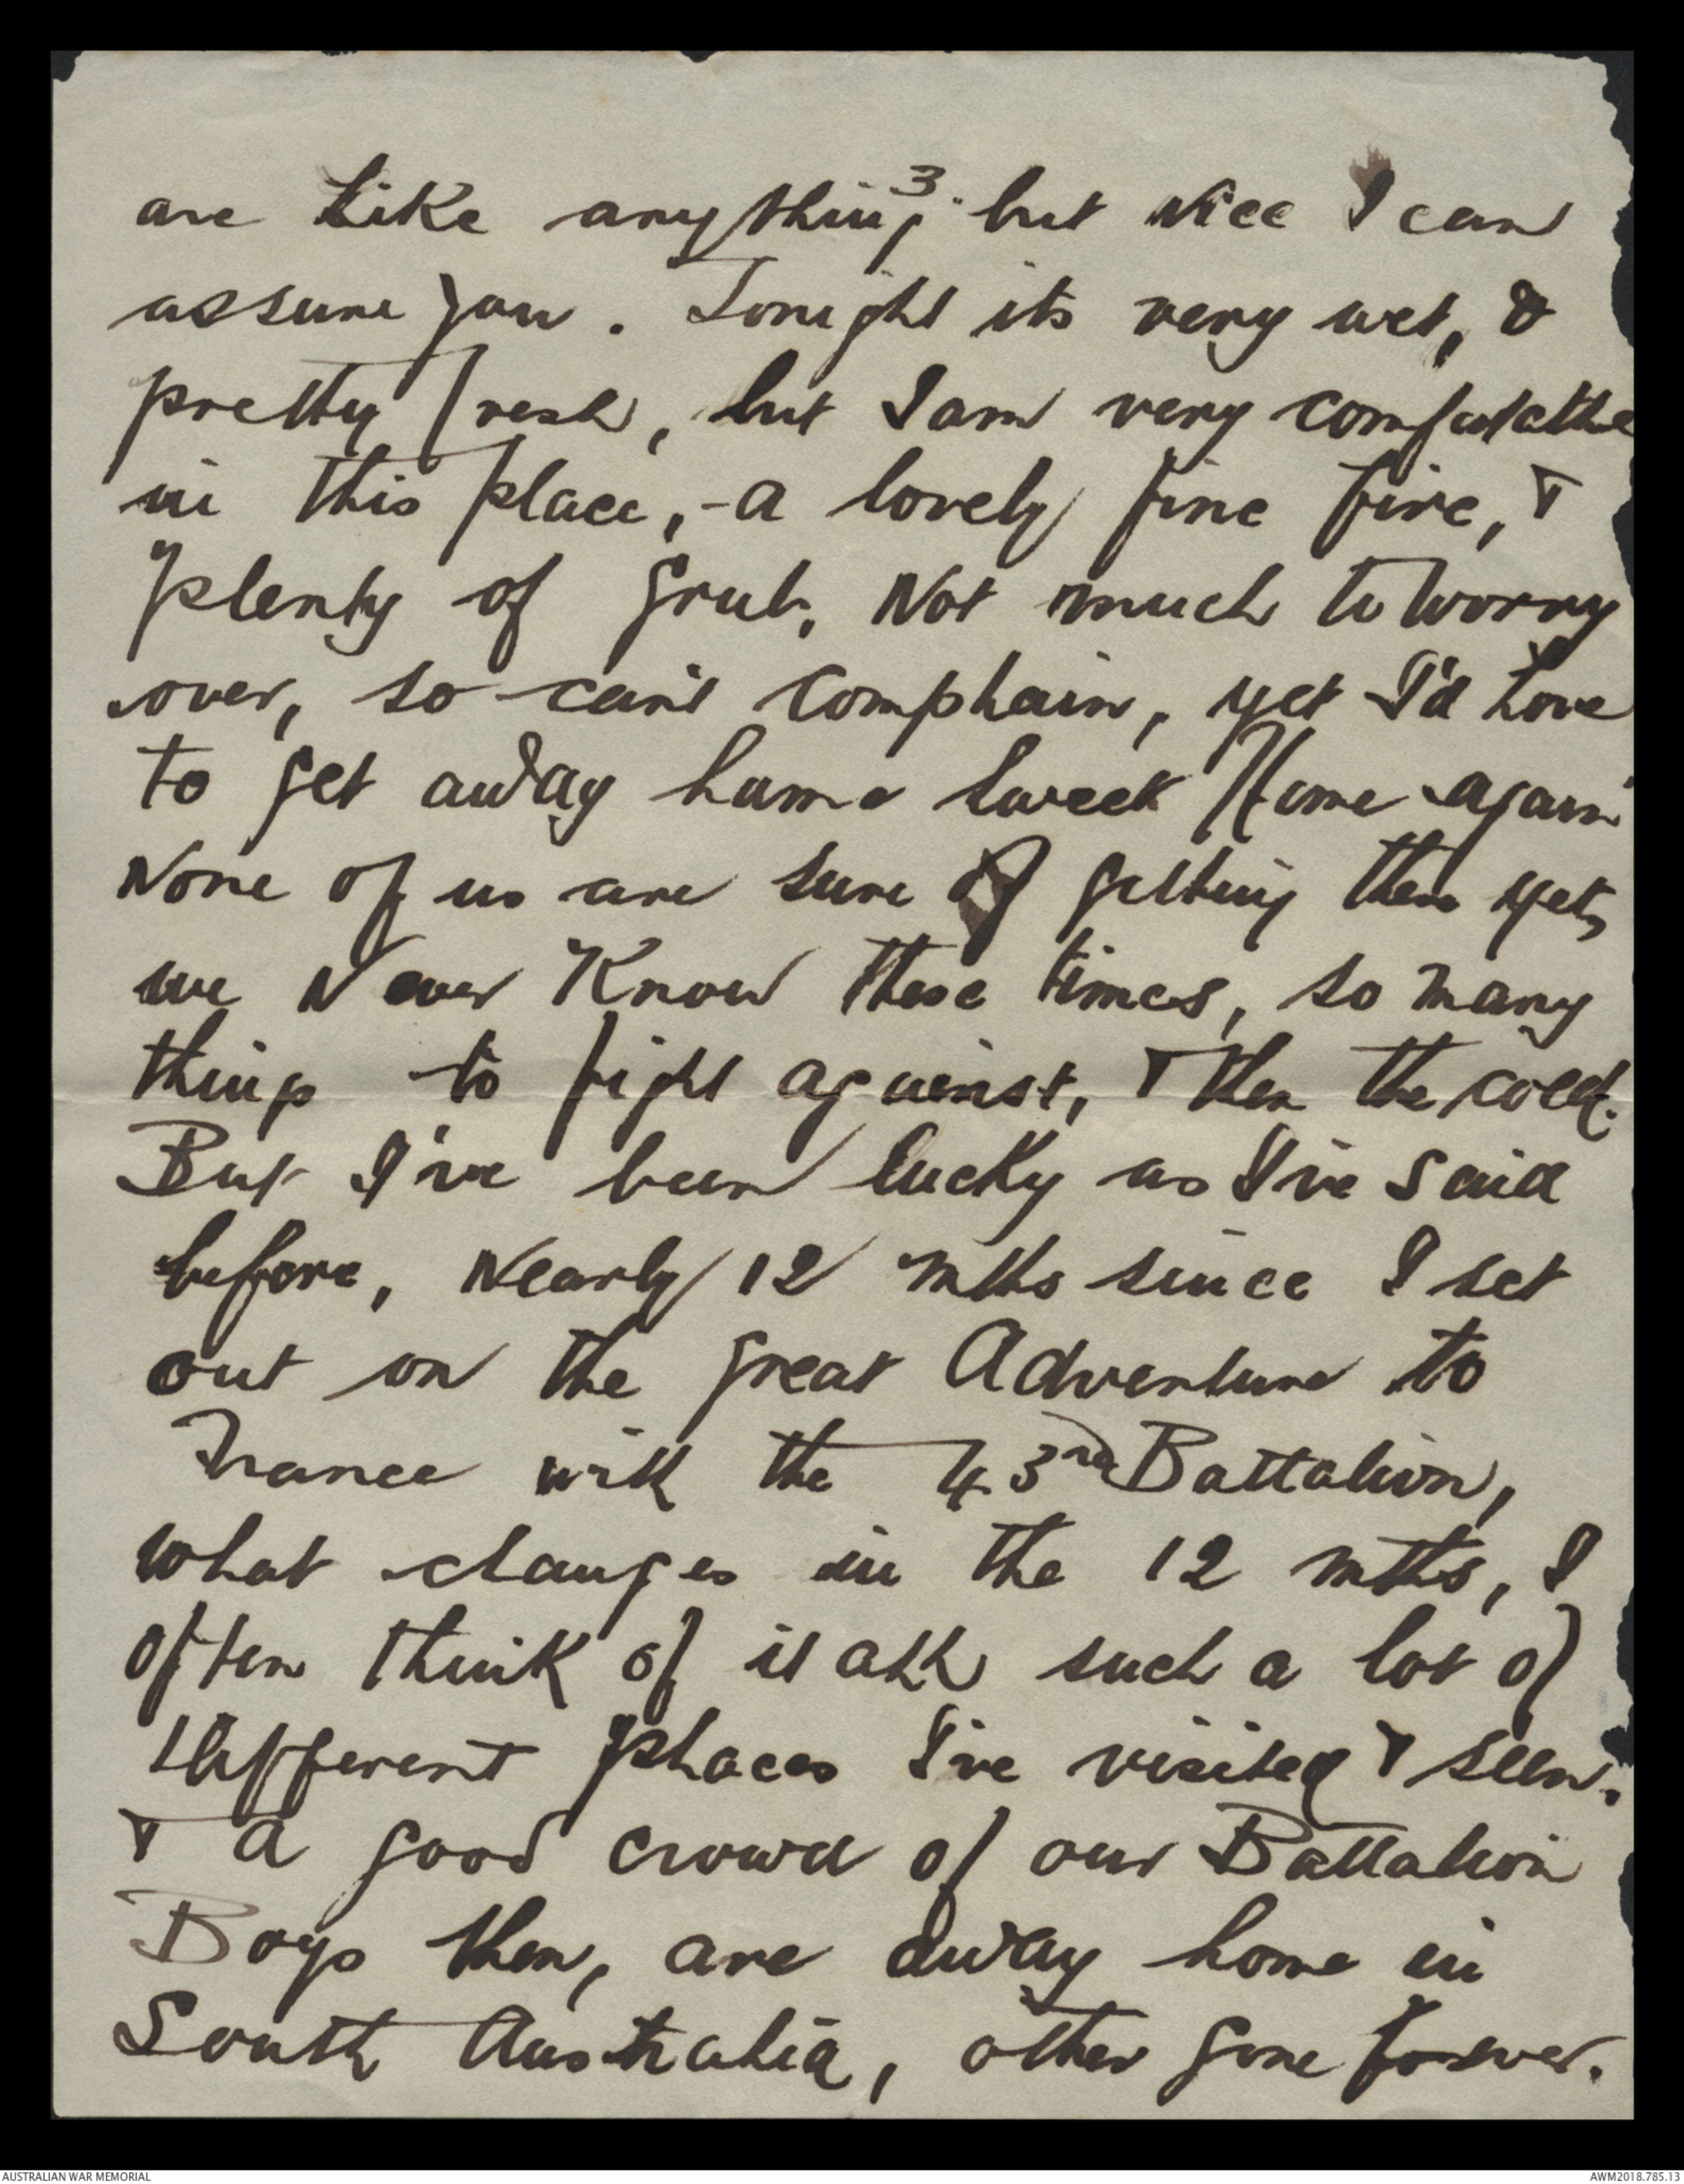 3.
are Like anything but Nice I can
assure you. Tonight its very wet, &
pretty fresh, but I am very comfortable
in this place, - a lovely fine fire, &
plenty of grub, Not much to Worry
over, so can't Complain, yet I'd Love
to get away home Sweet Home again
None of us are sure of getting there yet,
we Never Know these times, so many
things to fight against, & then the cold.
But I've been lucky as I've said
before, Nearly 12 mths since I set
out on the great Adventure to
France with the 43rd Battalion,
what changes in the 12 mths, I
often think of it all such a lot of
different places I've visited & seen.
& a good crowd of our Battalion
Boys then, are away home in
South Australia, other gone forever.
AUSTRALIAN WAR MEMORIAL
AWM2018.785.13